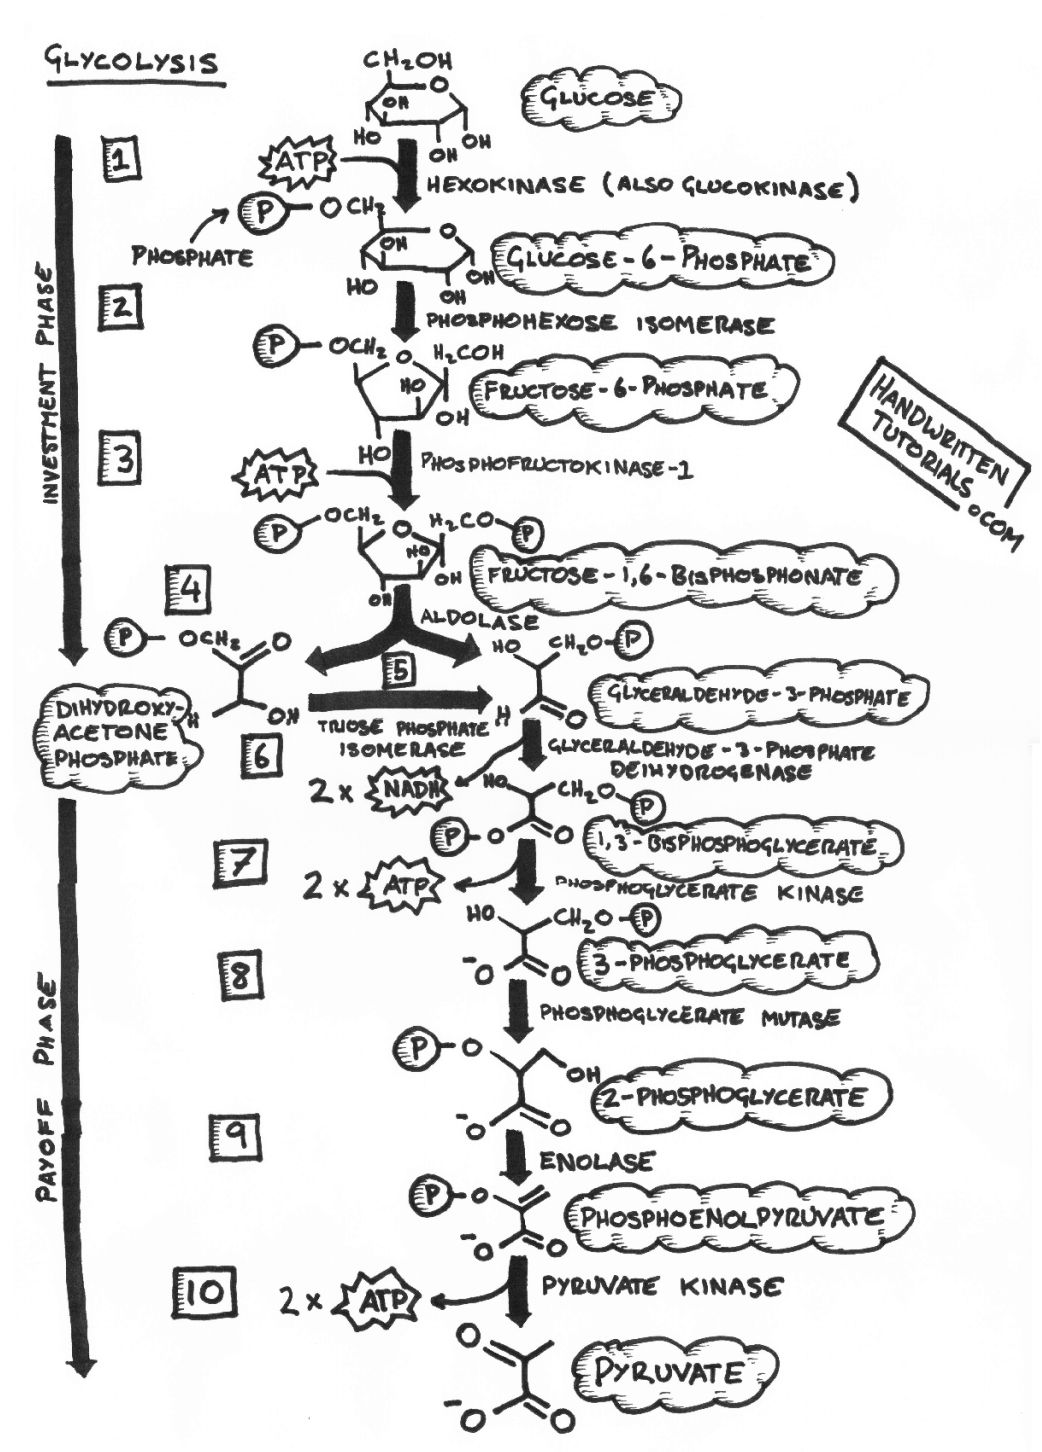 GLYCOLYSIS
CH₂OH
O
OH
HO
OH
OH
GLUCOSE
1
ATP
HEXOKINASE (ALSO GLUCOKINASE)
P
OCH₂
PHOSPHATE
O
OH
HO
OH
OH
GLUCOSE-6-PHOSPHATE
2
PHOSPHOHEXOSE ISOMERASE
P
OCH₂
O
H₂COH
HO
OH
HO
FRUCTOSE-6-PHOSPHATE
HANDWRITTEN
TUTORIALS
.COM
INVESTMENT PHASE
3
ATP
PHOSPHOFRUCTOKINASE-1
P
OCH₂
O
H₂CO
P
HO
OH
OH
FRUCTOSE-1,6-BISPHOSPHONATE
4
ALDOLASE
P
OCH₂
O
OH
H
DIHYDROXY-
ACETONE
PHOSPHATE
5
TRIOSE PHOSPHATE
ISOMERASE
HO
CH₂O
P
H
O
GLYCERALDEHYDE-3-PHOSPHATE
6
GLYCERALDEHYDE-3-PHOSPHATE
DEIHYDROGENASE
2 x NADH
HO
CH₂O
P
P
O
O
1,3-BISPHOSPHOGLYCERATE
7
2 x ATP
PHOSPHOGLYCERATE KINASE
HO
CH₂O
P
⁻O
O
3-PHOSPHOGLYCERATE
8
PHOSPHOGLYCERATE MUTASE
P
O
OH
⁻O
O
2-PHOSPHOGLYCERATE
PAYOFF PHASE
9
ENOLASE
P
O
⁻O
O
PHOSPHOENOLPYRUVATE
10
2 x ATP
PYRUVATE KINASE
O
⁻O
O
PYRUVATE